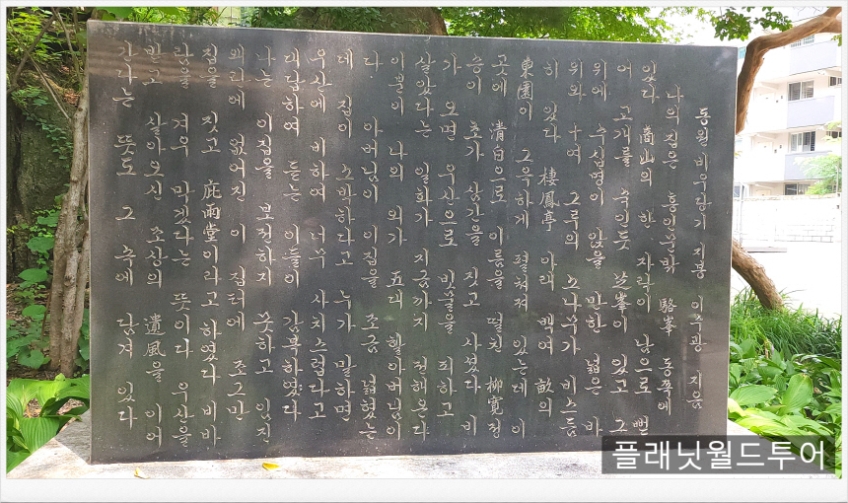 동원비우당기 지봉 이수광 지음
나의 집은 흥인문밖 駱峯 동쪽에
있다 商山의 한 자락이 남으로 뻗
어 고개를 숙인듯 芝峯이 있고 그
위에 수십명이 앉을 만한 넓은 바
위와 十여 그루의 소나무가 비스듬
히 있다 棲鳳亭 아래 백여 畝의
東園이 그윽하게 펼쳐져 있는데 이
곳에 淸白으로 이름을 떨친 柳寬정
승이 초가 삼간을 짓고 사셨다 비
가 오면 우산으로 빗물을 피하고
살았다는 일화가 지금까지 전해온다
이분이 나의 외가 五대 할아버님이
다. 아버님이 이집을 조금 넓혔는
데 집이 소박하다고 누가 말하면
우산에 비하여 너무 사치스럽다고
대답하여 듣는 이들이 감복하였다
나는 이집을 보전하지 못하고 임진
왜란에 없어진 이 집터에 조그만
집을 짓고 庇雨堂이라고 하였다 비바
람을 겨우 막겠다는 뜻이다 우산을
받고 살아오신 조상의 遺風을 이어
간다는 뜻도 그 속에 담겨 있다
플래닛월드투어